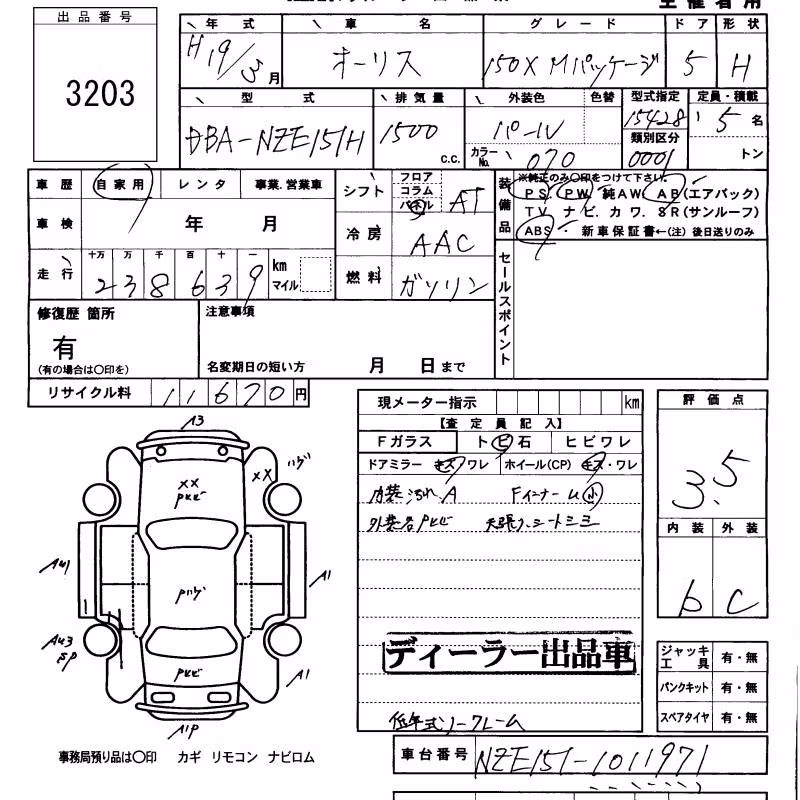 出品番号
3203
年式 車名 グレード ドア 形状
H19/3月 オーリス 150X Mパッケージ 5 H
型式 排気量 外装色 色替 型式指定 定員・積載
DBA-NZE151H 1500 c.c. パール 15428 5名
カラーNo. 070 類別区分 0001 トン
車歴 自家用 レンタ 事業.営業車
車検 年 月
走行 十万 万 千 百 十 一
2 3 8 6 3 9 km マイル
シフト フロア コラム パネル AT
冷房 AAC
燃料 ガソリン
装備品 ※純正のみ○印をつけて下さい.
PS. PW. 純AW. AB(エアバック)
TV. ナビ. カワ. SR(サンルーフ)
ABS 新車保証書←(注) 後日送りのみ
セールスポイント
修復歴 箇所
有
(有の場合は○印を)
注意事項
名変期日の短い方 月 日まで
リサイクル料 11670円
現メーター指示 km
【査定員記入】
Fガラス トビ石 ヒビワレ
ドアミラー キズ/ワレ ホイール(CP) キズ・ワレ
内装汚れ.A Fインナーム小
外装各Pハビ 天張り.シートシミ
ディーラー出品車
低年式ノークレーム
評価点
3.5
内装 外装
b C
ジャッキ 工具 有・無
パンクキット 有・無
スペアタイヤ 有・無
A3
××
××
Pハゲ
AU1
A1
AU3
SP
A1
A1P
事務局預り品は○印 カギ リモコン ナビロム
車台番号 NZE151-1011971